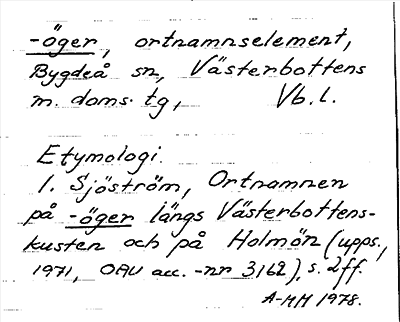 -öger, ortnamnselement,
Bygdeå sn, Västerbottens
m. doms. tg, Vb. l.
Etymologi.
I. Sjöström, Ortnamnen
på -öger längs Västerbottens-
kusten och på Holmön (upps.,
1971, OAU acc. -nr 3162), s. 2ff.
A-MH 1978.